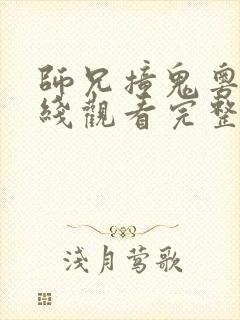 師兄撞鬼粵
綫觀看完整
淺月莺歌